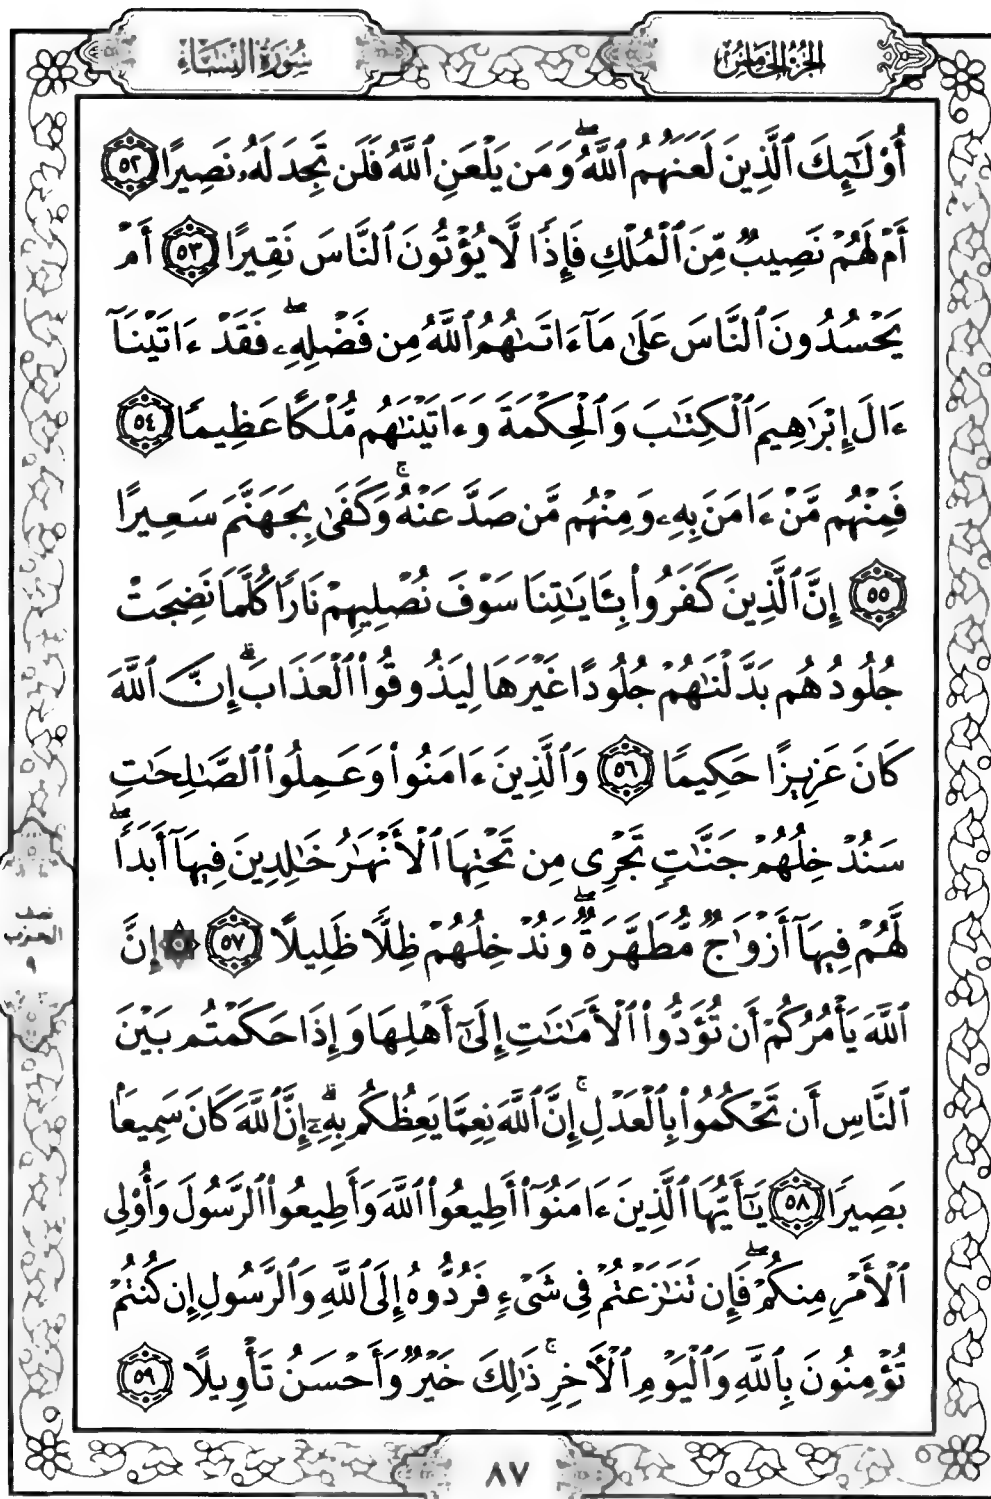 الجزء الخامس
سورة النساء
أُوْلَٰٓئِكَ ٱلَّذِينَ لَعَنَهُمُ ٱللَّهُۖ وَمَن يَلْعَنِ ٱللَّهُ فَلَن تَجِدَ لَهُۥ نَصِيرًا ٥٢
أَمْ لَهُمْ نَصِيبٌ مِّنَ ٱلْمُلْكِ فَإِذًا لَّا يُؤْتُونَ ٱلنَّاسَ نَقِيرًا ٥٣ أَمْ
يَحْسُدُونَ ٱلنَّاسَ عَلَىٰ مَآ ءَاتَىٰهُمُ ٱللَّهُ مِن فَضْلِهِۦۖ فَقَدْ ءَاتَيْنَآ
ءَالَ إِبْرَٰهِيمَ ٱلْكِتَٰبَ وَٱلْحِكْمَةَ وَءَاتَيْنَٰهُم مُّلْكًا عَظِيمًا ٥٤
فَمِنْهُم مَّنْ ءَامَنَ بِهِۦ وَمِنْهُم مَّن صَدَّ عَنْهُۚ وَكَفَىٰ بِجَهَنَّمَ سَعِيرًا
٥٥ إِنَّ ٱلَّذِينَ كَفَرُوا۟ بِـَٔايَٰتِنَا سَوْفَ نُصْلِيهِمْ نَارًا كُلَّمَا نَضِجَتْ
جُلُودُهُم بَدَّلْنَٰهُمْ جُلُودًا غَيْرَهَا لِيَذُوقُوا۟ ٱلْعَذَابَۗ إِنَّ ٱللَّهَ
كَانَ عَزِيزًا حَكِيمًا ٥٦ وَٱلَّذِينَ ءَامَنُوا۟ وَعَمِلُوا۟ ٱلصَّٰلِحَٰتِ
سَنُدْخِلُهُمْ جَنَّٰتٍ تَجْرِى مِن تَحْتِهَا ٱلْأَنْهَٰرُ خَٰلِدِينَ فِيهَآ أَبَدًاۖ
لَّهُمْ فِيهَآ أَزْوَٰجٌ مُّطَهَّرَةٌۖ وَنُدْخِلُهُمْ ظِلًّا ظَلِيلًا ٥٧ ۞ إِنَّ
ٱللَّهَ يَأْمُرُكُمْ أَن تُؤَدُّوا۟ ٱلْأَمَٰنَٰتِ إِلَىٰٓ أَهْلِهَا وَإِذَا حَكَمْتُم بَيْنَ
ٱلنَّاسِ أَن تَحْكُمُوا۟ بِٱلْعَدْلِۚ إِنَّ ٱللَّهَ نِعِمَّا يَعِظُكُم بِهِۦٓۗ إِنَّ ٱللَّهَ كَانَ سَمِيعًۢا
بَصِيرًا ٥٨ يَٰٓأَيُّهَا ٱلَّذِينَ ءَامَنُوٓا۟ أَطِيعُوا۟ ٱللَّهَ وَأَطِيعُوا۟ ٱلرَّسُولَ وَأُو۟لِى
ٱلْأَمْرِ مِنكُمْۖ فَإِن تَنَٰزَعْتُمْ فِى شَىْءٍ فَرُدُّوهُ إِلَى ٱللَّهِ وَٱلرَّسُولِ إِن كُنتُمْ
تُؤْمِنُونَ بِٱللَّهِ وَٱلْيَوْمِ ٱلْأَخِرِۚ ذَٰلِكَ خَيْرٌ وَأَحْسَنُ تَأْوِيلًا ٥٩
نصف
الحزب
٩
٨٧